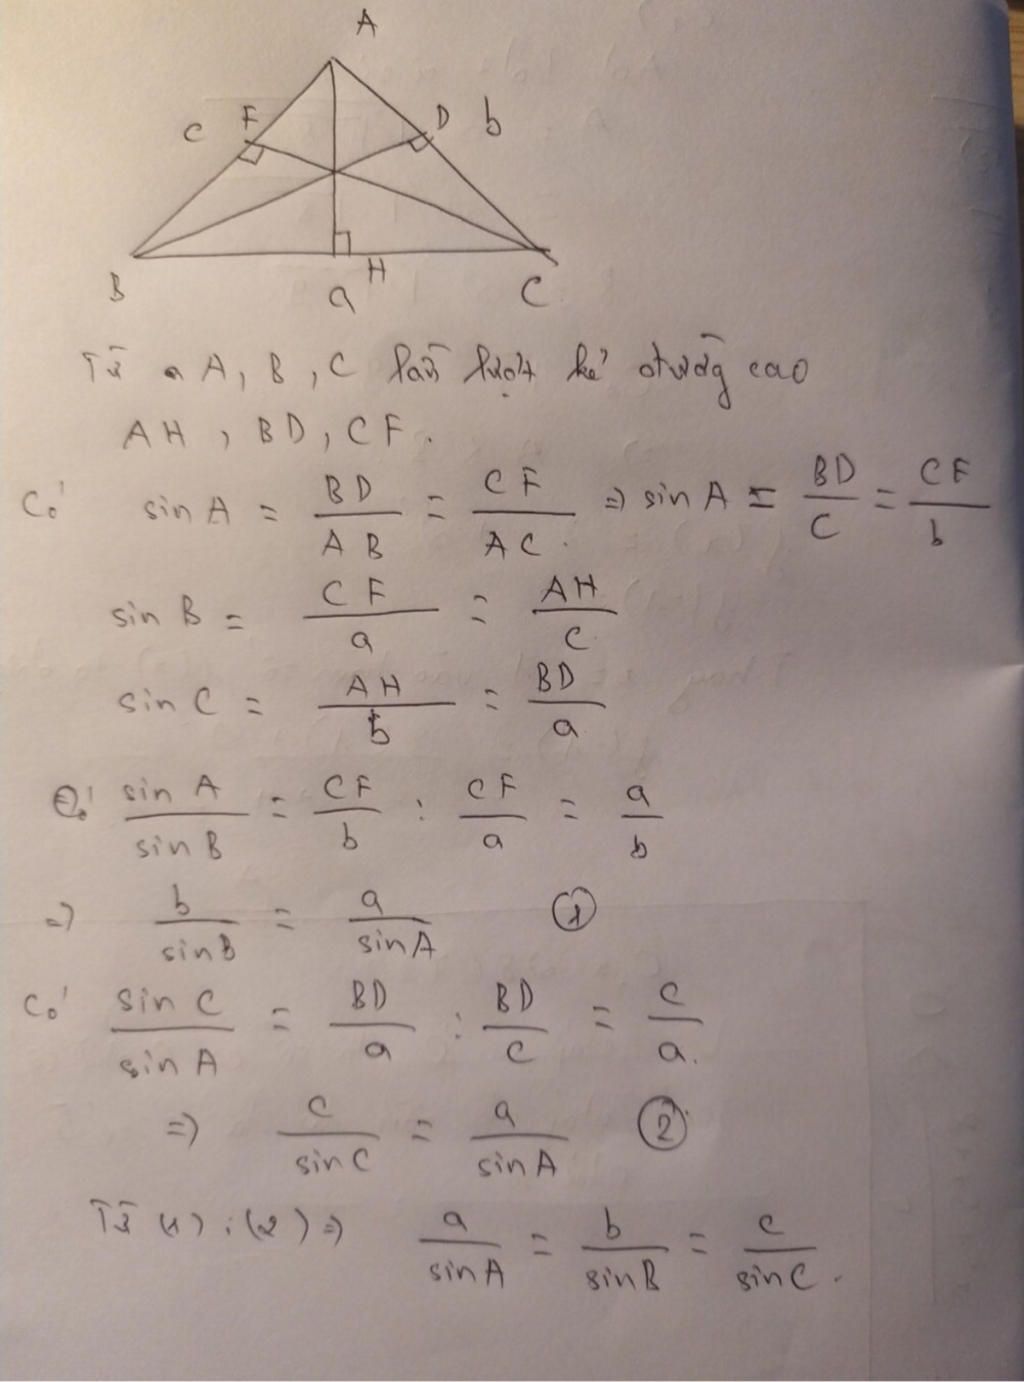 A
c F D b
B a H C
Từ A, B, C lần lượt kẻ đường cao
AH, BD, CF.
Có sin A = BD/AB = CF/AC. => sin A = BD/c = CF/b
sin B = CF/a = AH/c
sin C = AH/b = BD/a
Có sin A/sin B = CF/b : CF/a = a/b
=> b/sin B = a/sin A ①
Có sin C/sin A = BD/a : BD/c = c/a.
=> c/sin C = a/sin A ②
Từ (1) ; (2) => a/sin A = b/sin B = c/sin C.